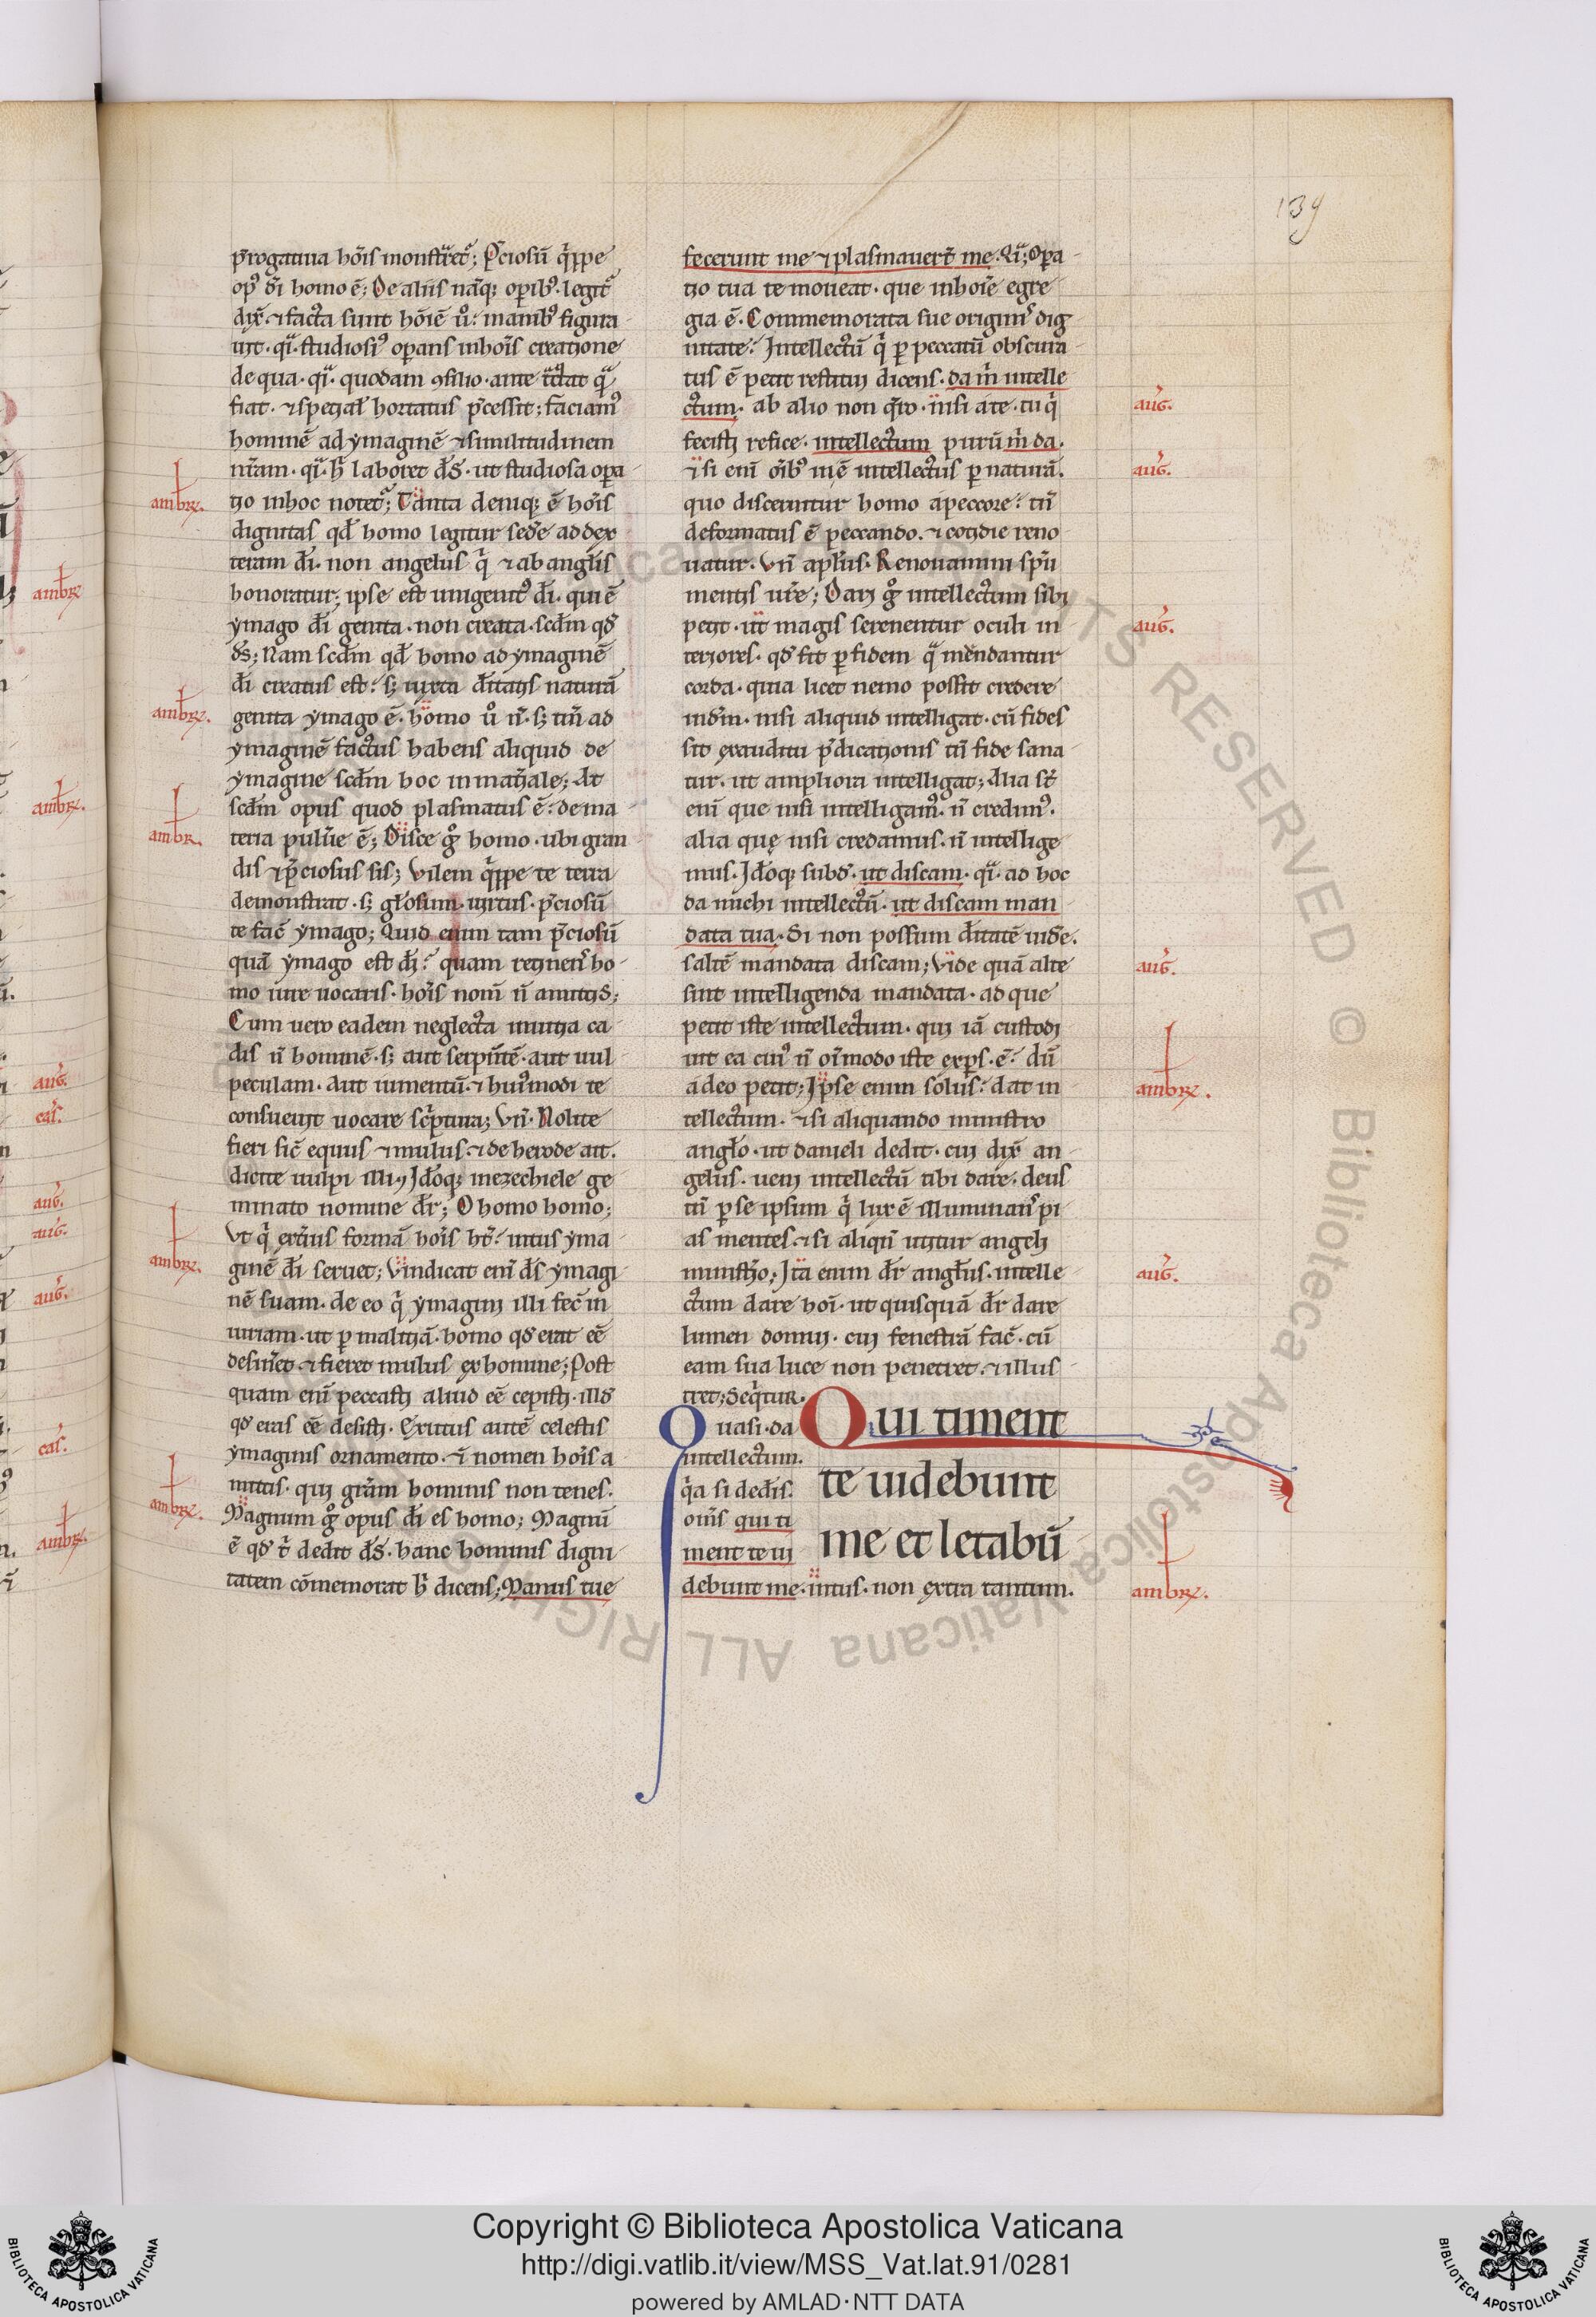 139
p̄rogatiua hōis monstͣretᷣ; P̄ciosū qͥppe
opꝰ dī homo ē; De aliis nāqꝫ oꝑibꝰ legitᷣ
dix̄ ⁊ facta sunt hōiē ūo manibꝰ figura
uit. qͣi. studiosiꝰ oꝑans inhoīs creatione
de qua. qͣi. quodam ꝯsilio. ante tͣctat qͣ
fiat. ⁊ spetiał hortatus p̄cessit; faciamꝰ
hominē ad ymaginē ⁊ similitudinem
nrām. qͣi. h̄ laboret d̄s. ut studiosa oꝑa
tio inhoc notetᷣ; Tanta deniqꝫ ē hoīs
dignitas qd̄ homo legitur sedē ad dex
teram dī. non angelus qͥ ⁊ ab angłis
honoratur; ipse est unigenitꝰ dī. qui ē
ymago dī genita. non creata. scdm qd̄
d̄s; Nam scdm qd̄ homo ad ymaginē
dī creatus est. sꝫ iuxta dītatis naturā
genita ymago ē. homo ūo n̄. sꝫ tn̄ ad
ymaginē factus habens aliquid de
ymagine scdm hoc inmat̄iale; At
scdm opus quod plasmatus ē. de ma
teria pulūe ē; Disce gͦ homo. ubi gran
dis ⁊ p̄ciosus sis; Vilem qͥppe te terra
demonstrat. sꝫ głosum. uirtus. p̄ciosū
te fac̄ ymago; Quid enim tam p̄ciosū
quā ymago est dī? quam retinenˢ ho
mo iure uocaris. hoīs nom̄ n̄ amittis;
Cum uero eadem neglecta iniuria ca
dis n̄ hominē. sꝫ aut serpentē. aut uul
peculam. aut iumentū. ⁊ huiꝰmodi te
consueuit uocare scͥptura; Vn̄. Nolite
fieri sic̄ equus ⁊ mulus. ⁊ de herode ait.
dicite uulpi illi; Jdoqꝫ inezechiele ge
minato nomine dr̄; O homo homo;
Vt qͥ ext̄ius formā hoīs ht̄. intus yma
ginē dī seruet; Vindicat enī d̄s ymagi
nē suam. de eo qͥ ymagini illi fec̄ in
iuriam. ut ꝑ malitiā. homo qd̄ erat eē
desinet ⁊ fieret mulus ex homine; Post
quam enī peccasti aliud eē cepisti. illd̄
qd̄ eras eē desisti. Exutus autē celestis
ymaginis ornamento. ⁊ nomen hoīs a
mittis. qui gratiam hominis non tenes.
Magnum gͦ opus dī es homo; Magnū
ē qd̄ t̄ dedit d̄s. hanc hominis digni
tatem cōmemorat h̄ dicens; Manus tue
ambr̄.
ambr̄.
ambr.
ambr̄.
ambr̄.
fecerunt me ⁊ plasmauert̄ me. Qͣi; Oꝑa
tio tua te moueat. que inhoīe egre
gia ē. Commemorata sue originiˢ dig
nitate. Intellectū qͥ ꝑ peccatū obscura
tus ē petit restitui dicens. da m̄ intelle
ctum. ab alio non q̄ro. nisi ate. tu qͥ
fecisti refice. intellectum purū m̄ da.
⁊ si enī oībꝰ inē intellectus ꝑ naturā.
quo discernitur homo apeccore. tn̄
deformatus ē peccando. ⁊ cotidie reno
uatur. Vn̄ apłus. Renouamini sp̄u
mentis ur̄e; Dari gͦ intellectum sibi
petit. ut magis serenentur oculi in
teriores. qd̄ fit ꝑ fidem qͣ mendantur
corda. quia licet nemo possit credere
indm̄. nisi aliquid intelligat. cū fides
sit exauditu p̄dicationis tn̄ fide sana
tur. ut ampliora intelligat; Alia st̄
enī que nisi intelligamꝰ. n̄ credimꝰ.
alia quę nisi credamus. n̄ intellige
mus. Jdoqꝫ subd̄. ut discam. qͣi. ad hoc
da michi intellectū. ut discam man
data tua. Si non possum dītatē uidē.
saltē mandata discam; Vide quā alte
sint intelligenda mandata. ad que
petit iste intellectum. qui iā custodi
uit ea cuiꝰ n̄ oīmodo iste exp̄s. ē. dū
adeo petit; Jpse enim solus. dat in
tellectum. ⁊ si aliquando ministro
angło. ut danieli dedit. cui dix̄ an
gelus. ueni intellectū tibi dare. deus
tn̄ ꝑ se ipsum qͥ lux ē illuminanˢ pi
as mentes. ⁊ si aliqn̄ utitur angeli
minist̄io; Jta enim dr̄ angłus. intelle
ctum dare hoī. ut quisquā dr̄ dare
lumen domui. cui fenestrā fac̄. cū
eam sua luce non penetret. ⁊ illus
tret; Seqͥtur.
Quasi. da
intellectum.
qͥa si dedīs.
oīns qui ti
ment te ui
debunt me. intus. non extra tantum.
Qui timent
te uidebunt
me et letabū
auḡ.
auḡ.
auḡ.
auḡ.
ambr̄.
auḡ.
ambr̄.
ambr̄
ambr̄.
auḡ.
cas̄.
auḡ.
auḡ.
auḡ.
cas̄.
ambr̄.
© Biblioteca Apostolica Vaticana ALL RIGHTS RESERVED
Copyright © Biblioteca Apostolica Vaticana
http://digi.vatlib.it/view/MSS_Vat.lat.91/0281
powered by AMLAD·NTT DATA
BIBLIOTECA APOSTOLICA VATICANA
BIBLIOTECA APOSTOLICA VATICANA